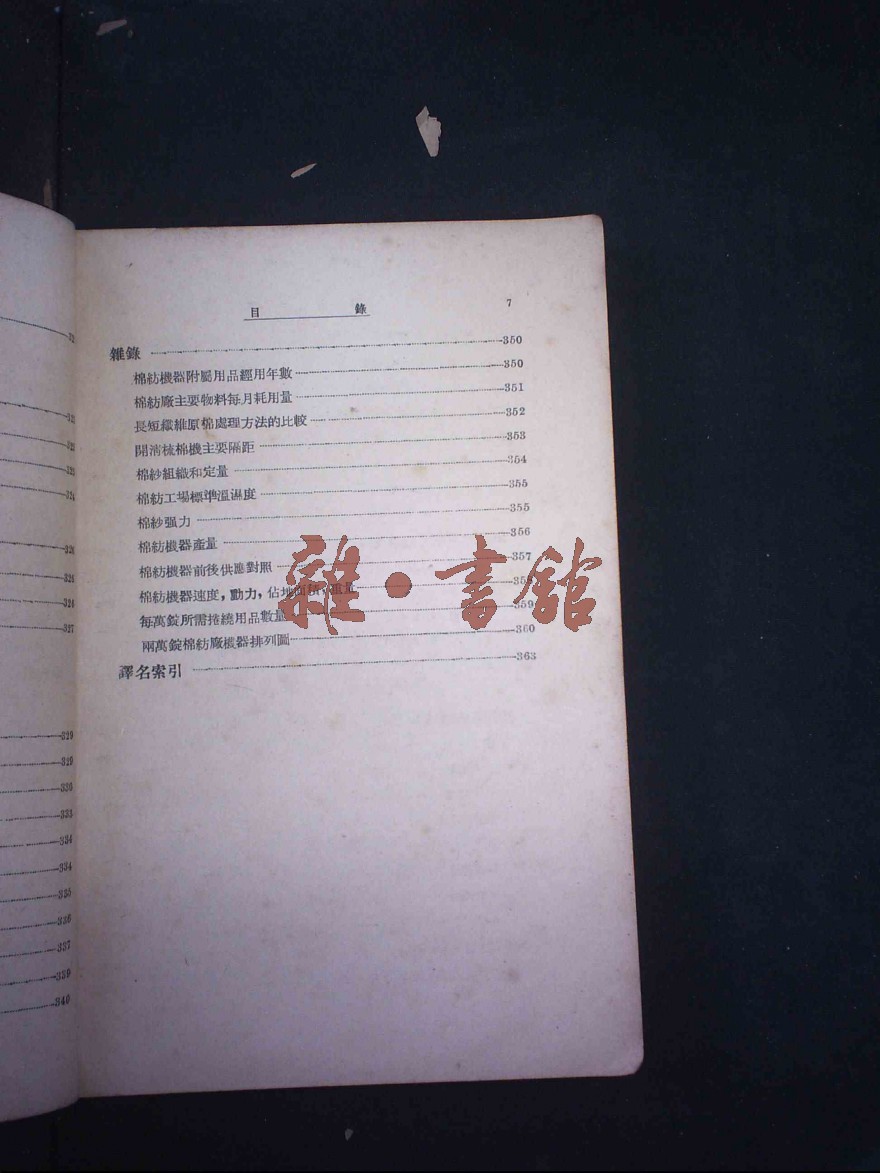 目 錄 7
雜錄 350
棉紡機器附屬用品經用年數 350
棉紡廠主要物料每月耗用量 351
長短纖維原棉處理方法的比較 352
開清梳棉機主要隔距 353
棉紗組織和定量 354
棉紡工場標準溫濕度 355
棉紗强力 355
棉紡機器產量 356
棉紡機器前後供應對照 357
棉紡機器速度，動力，佔地面積 重量 358
每萬錠所需捲繞用品數量 359
兩萬錠棉紡廠機器排列圖 360
譯名索引 363
雜·書館
327
329
329
330
333
334
334
335
336
337
339
340